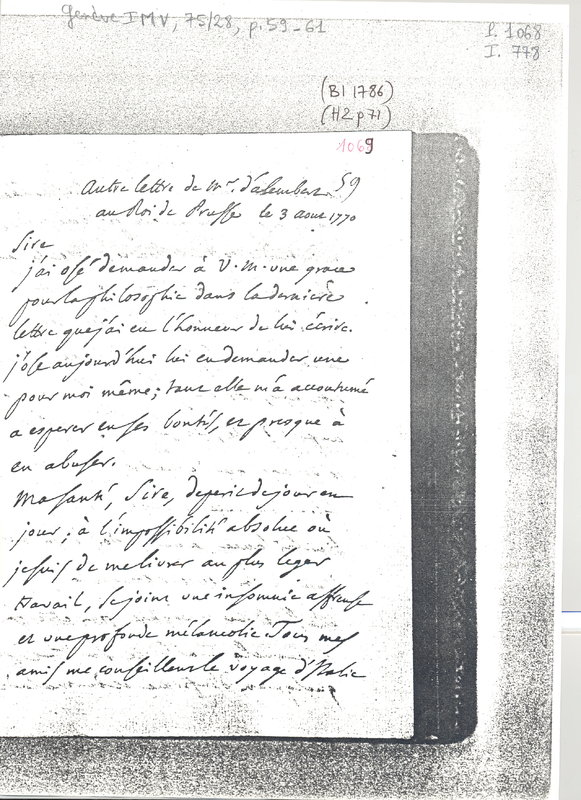 Genève IMV, 75/28, p. 59-61
P. 1068
I. 778
(BI 1786)
(H2 p71)
1069
59
autre lettre de Mr. d'alembert
au Roi de Prusse le 3 aout 1770
Sire
j'ai osé demander à V. M. une grace
pour la philosophie dans la derniere
lettre que j'ai eu l'honneur de lui écrire.
j'ose aujourd'hui lui en demander une
pour moi même; tant elle m'a accoutumé
a esperer en ses bontés, et presque à
en abuser.
Ma santé, Sire, deperit de jour en
jour; à l'impossibilité absolue où
je suis de me livrer au plus leger
travail, se joint une insomnie affreuse
et une profonde mélancolie Tous mes
amis me conseillent le voyage d'Italie